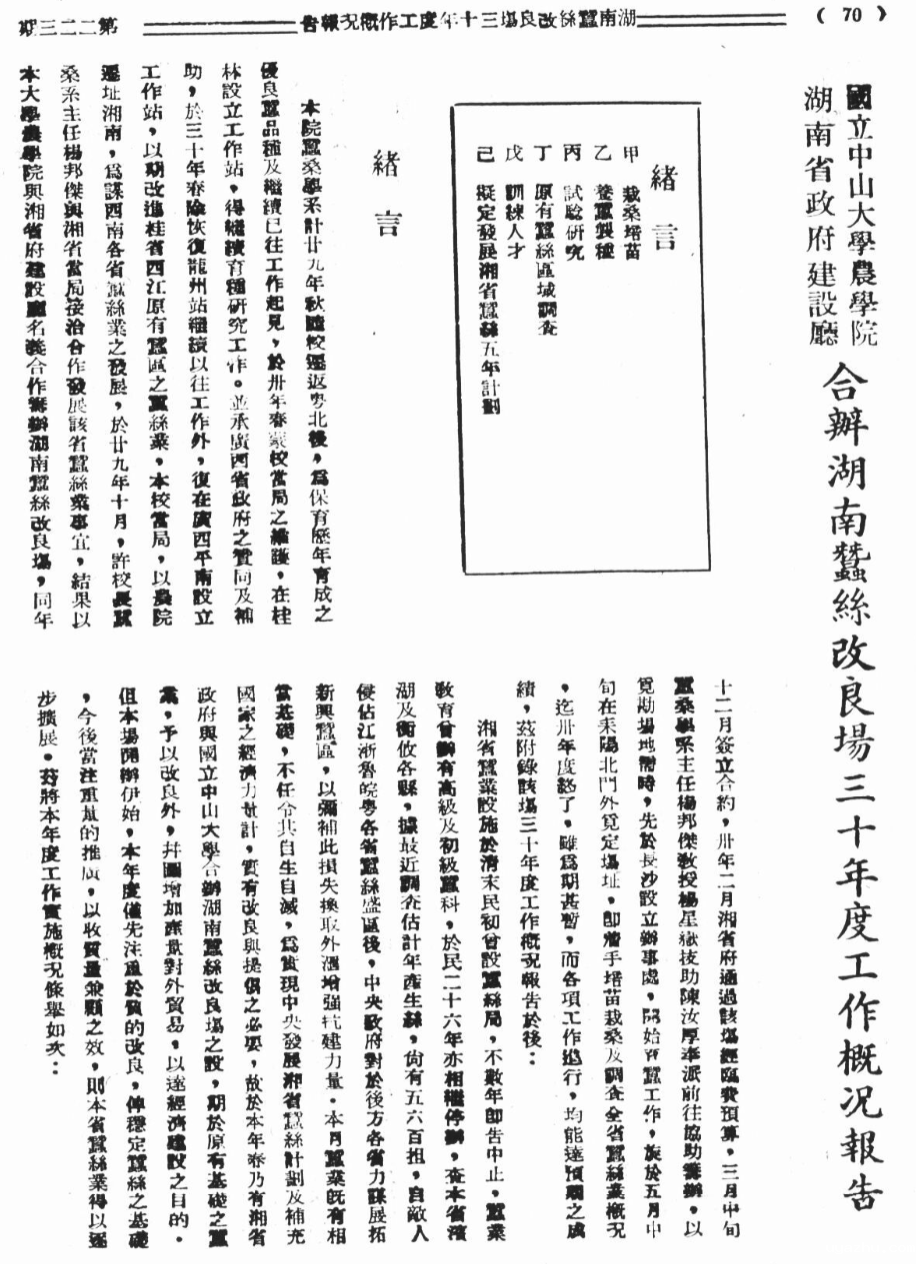 (70)
湖南蠶絲改良場三十年度工作概況報告
第二二三期
國立中山大學農學院
湖南省政府建設廳
合辦湖南蠶絲改良場三十年度工作概況報告
緒言
甲 栽桑培苗
乙 養蠶製種
丙 試驗研究
丁 原有蠶絲區域調查
戊 訓練人才
己 擬定發展湘省蠶絲五年計劃
緒言
本院蠶桑學系計廿九年秋隨校遷返粵北後，爲保育歷年育成之
優良蠶品種及繼續已往工作起見，於卅年春蒙校當局之維護，在桂
林設立工作站，得繼續育種研究工作。並承廣西省政府之贊同及補
助，於三十年春除恢復龍州站繼續以往工作外，復在廣西平南設立
工作站，以期改進桂省西江原有蠶區之蠶絲業，本校當局，以農院
遷址湘南，爲謀西南各省蠶絲業之發展，於廿九年十月，許校長蠶
桑系主任楊邦傑與湘省當局接洽合作發展該省蠶絲業事宜，結果以
本大學農學院與湘省府建設廳名義合作籌辦湖南蠶絲改良場，同年
十二月簽立合約，卅年二月湘省府通過該場經臨費預算，三月中旬
蠶桑學系主任楊邦傑教授楊星嶽技助陳汝厚奉派前往協助籌辦，以
覓勘場地需時，先於長沙設立辦事處，開始育蠶工作，旋於五月中
旬在耒陽北門外覓定場址，卽着手培苗栽桑及調查全省蠶絲業概況
，迄卅年度終了，雖爲期甚暫，而各項工作進行，均能達預期之成
績，茲附錄該場三十年度工作概況報告於後：
湘省蠶業設施於清末民初曾設蠶絲局，不數年卽告中止，蠶業
教育曾辦有高級及初級蠶科，於民二十六年亦相繼停辦，查本省濱
湖及衡攸各縣，據最近調查估計年產生絲，尙有五六百担，自敵人
侵佔江浙魯皖粵各省蠶絲盛區後，中央政府對於後方各省力謀展拓
新興蠶區，以彌補此損失換取外滙增強抗建力量。本月蠶業旣有相
當基礎，不任令其自生自滅，爲實現中央發展湘省蠶絲計劃及補充
國家之經濟力量計，實有改良與提倡之必要，故於本年春乃有湘省
政府與國立中山大學合辦湖南蠶絲改良場之設，期於原有基礎之蠶
業，予以改良外，幷圖增加產量對外貿易，以達經濟建設之目的。
但本場開辦伊始，本年度僅先注重於質的改良，俾穩定蠶絲之基礎
，今後當注重量的推廣，以收質量兼顧之效，則本省蠶絲業得以逐
步擴展。茲將本年度工作實施概況條舉如次：